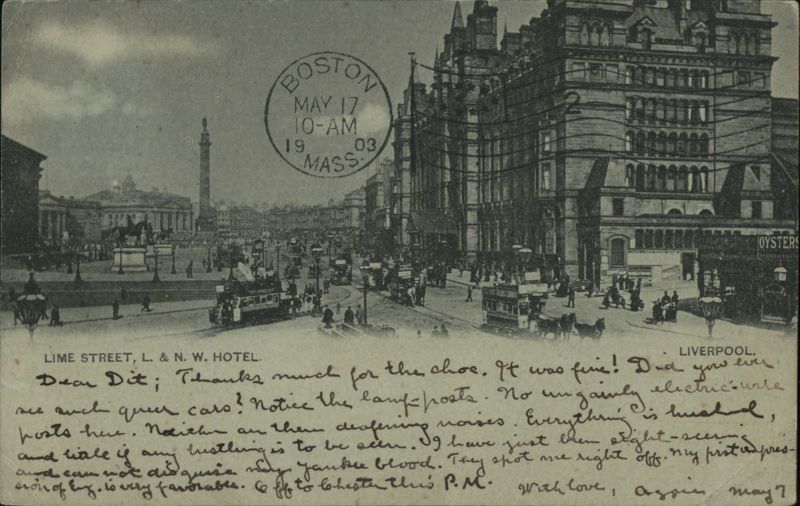 BOSTON
MAY 17
10-AM
1903
MASS.
2
OYSTERS
LIME STREET, L. & N. W. HOTEL.
LIVERPOOL.
Dear Dit; Thanks much for the choc. It was fine! Did you ever
see such queer cars? Notice the lamp-posts. No ungainly electric-wire
posts here. Neither are there deafening noises. Everything is hushed,
and little if any hustling is to be seen. I have just been sight-seeing
and can not disguise my Yankee blood. They spot me right off. My first impres-
sion of Eng. is very favorable. Off to Chester this P.M.
With love, Aggie May 7